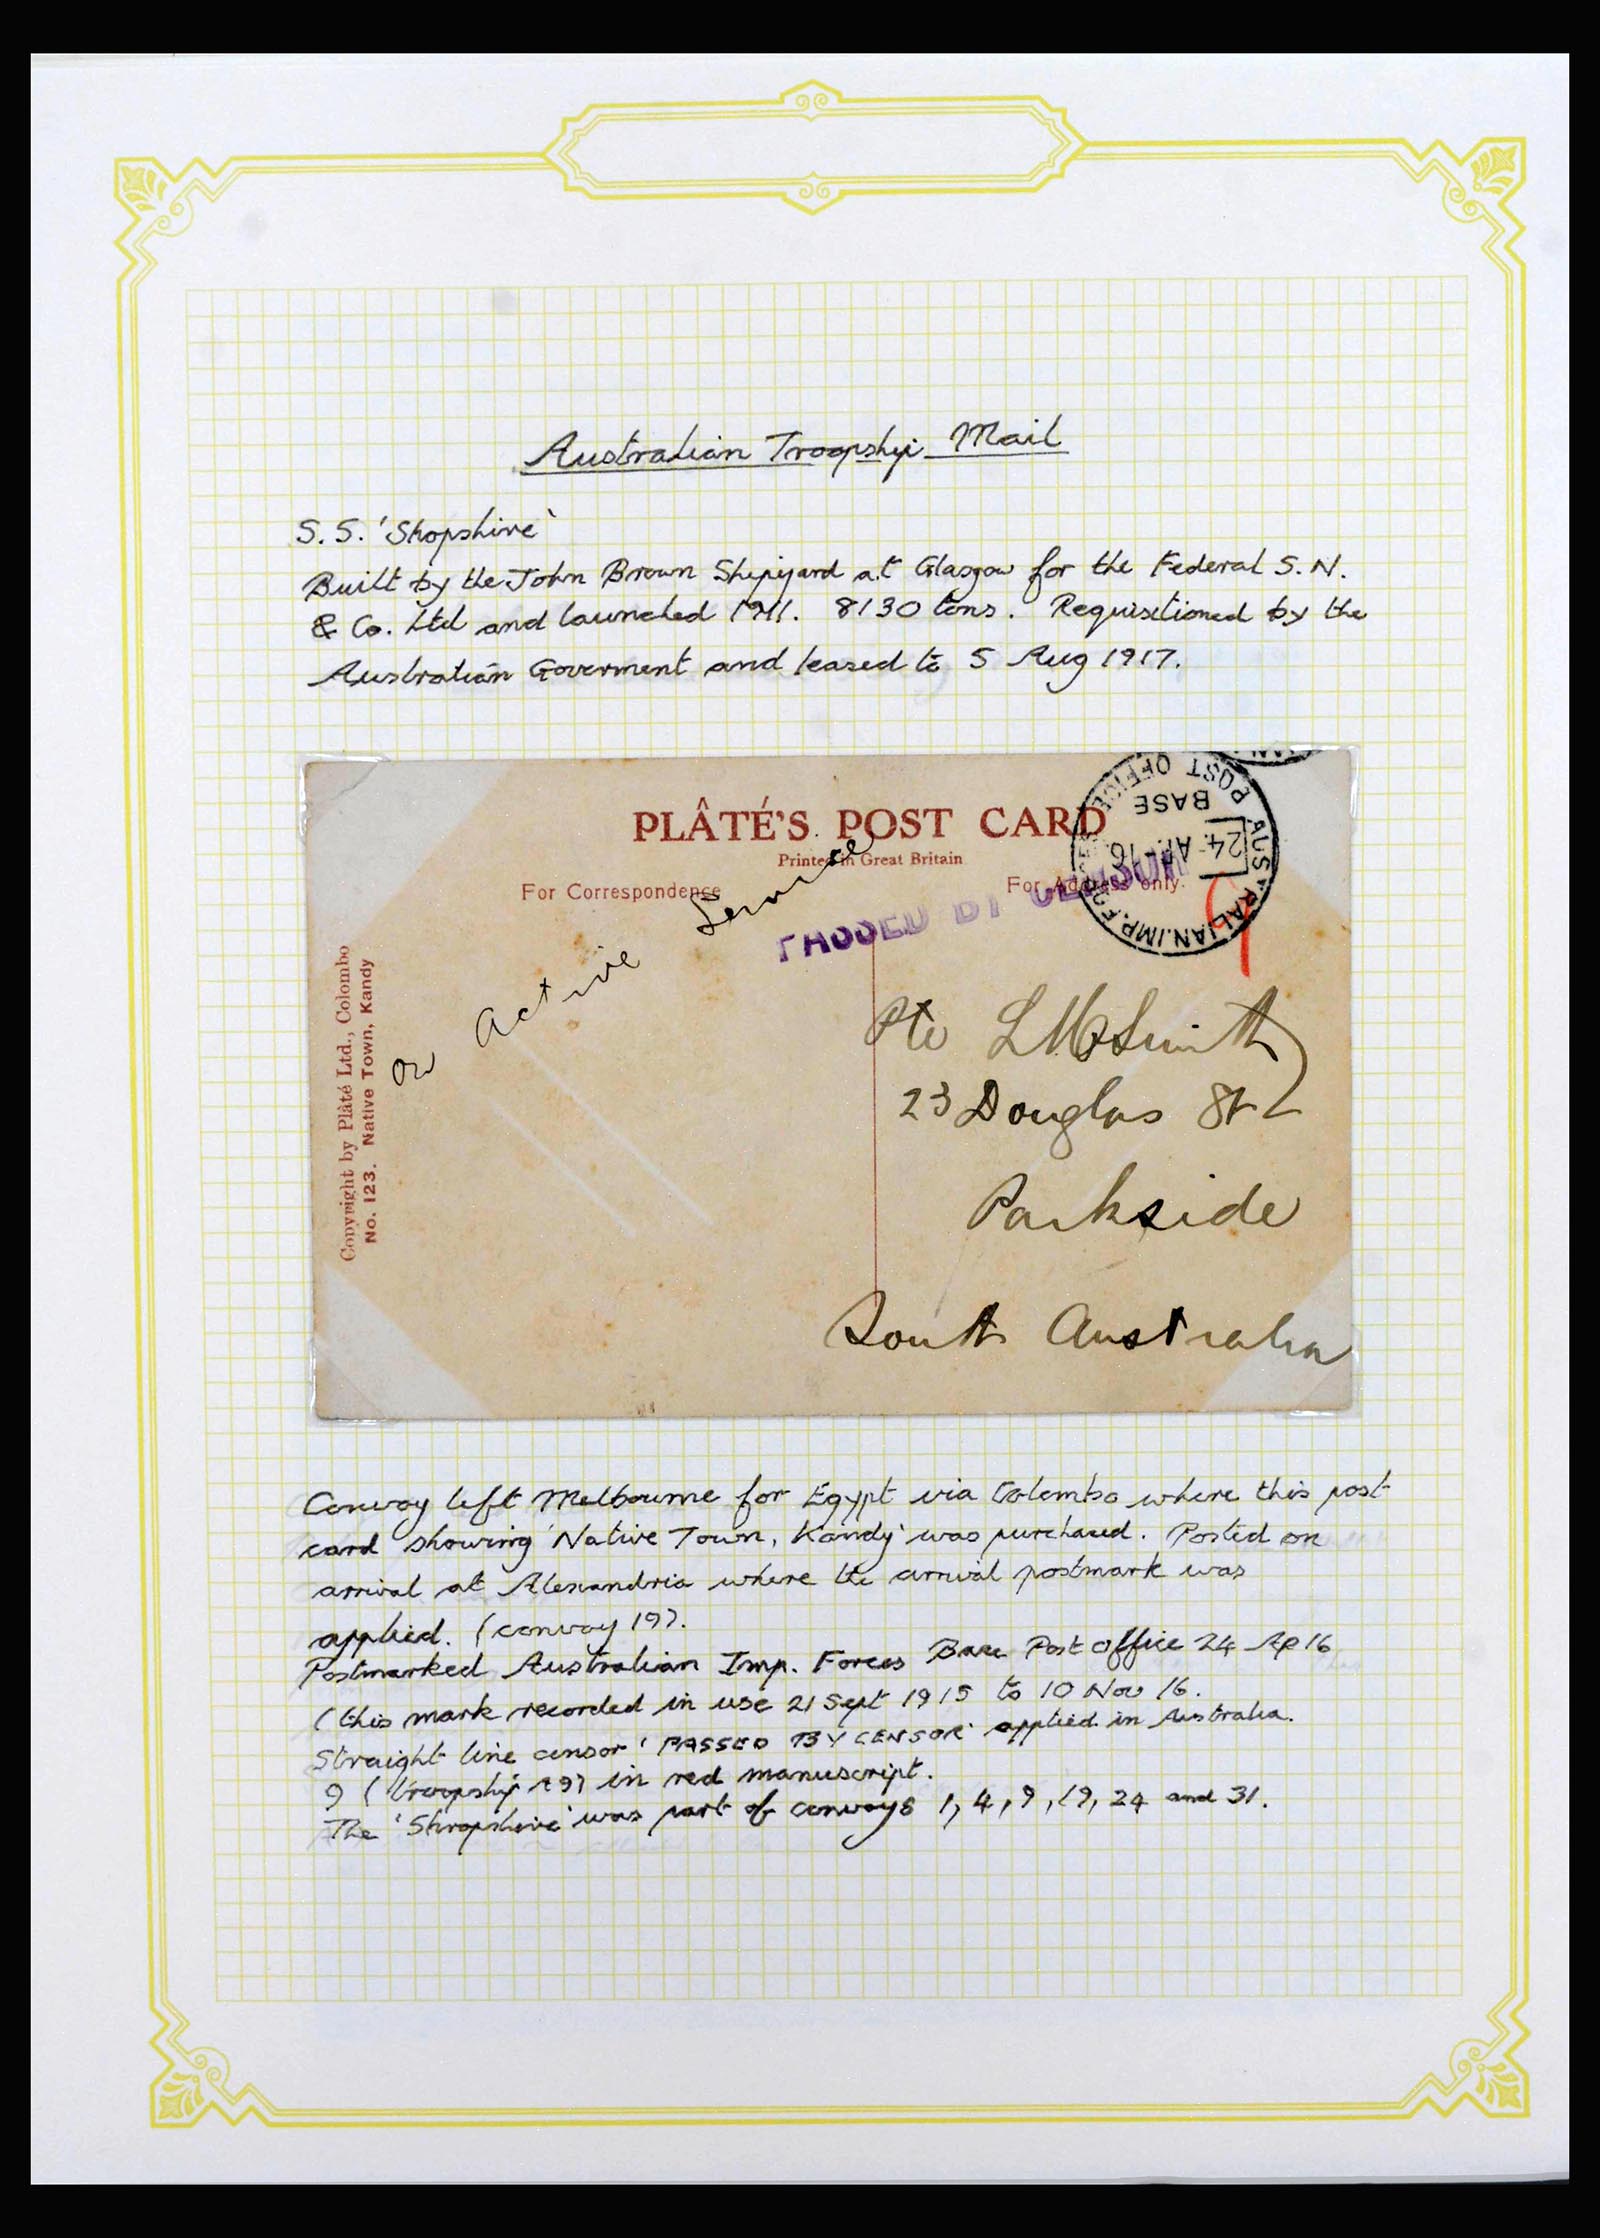 Australian Troopship Mail
S.S. 'Shopshire'
Built by the John Brown Shipyard at Glasgow for the Federal S.N.
& Co. Ltd and launched 1911. 8130 tons. Requisitioned by the
Australian Goverment and leased to 5 Aug 1917.
PLÂTÉ'S POST CARD
Printed in Great Britain
For Correspondence
For Address only.
PASSED BY CENSOR
AUSTRALIAN.IMP.FORCES
POST OFFICE
BASE
24 AP 16
9
On Active Service
Copyright by Plâté Ltd., Colombo
No. 123. Native Town, Kandy
Pte L M Smith
23 Douglas St
Parkside
South Australia
Convoy left Melbourne for Egypt via Colombo where this post-
card showing 'Native Town, Kandy' was purchased. Posted on
arrival at Alexandria where the arrival postmark was
applied. (convoy 19).
Postmarked Australian Imp. Forces Base Post Office 24 Ap 16
(this mark recorded in use 21 Sept 1915 to 10 Nov 16.
Straight line censor 'PASSED BY CENSOR' applied in Australia.
9 (troopship A9) in red manuscript.
The 'Shropshire' was part of convoys 1, 4, 9, 19, 24 and 31.